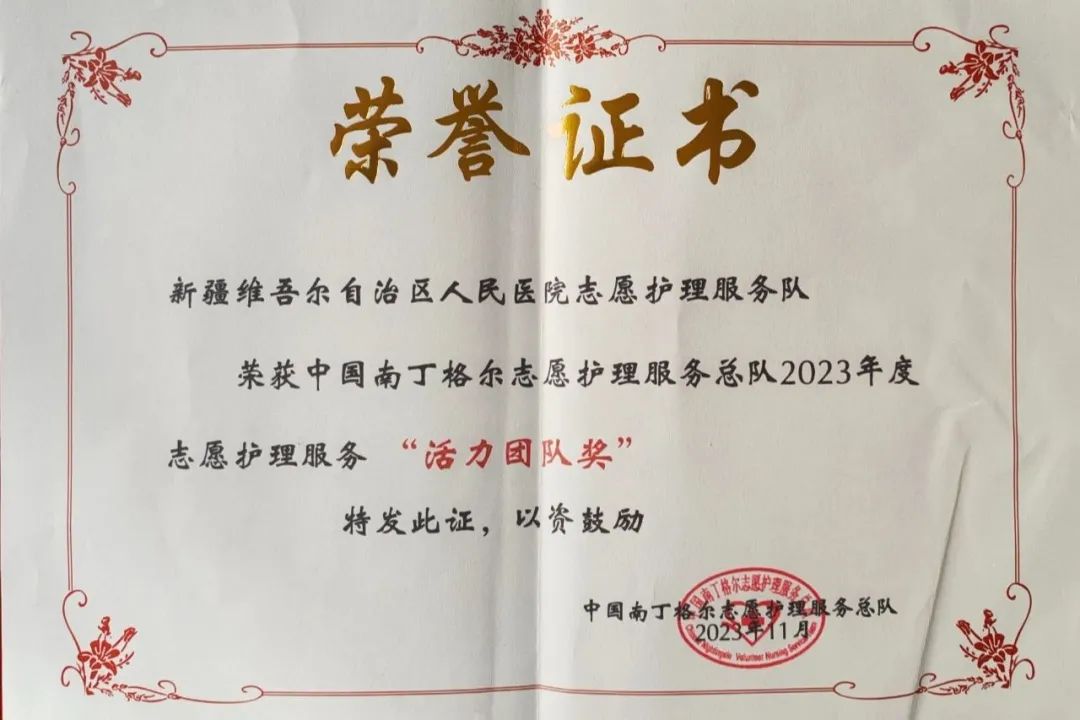 荣誉证书
新疆维吾尔自治区人民医院志愿护理服务队
荣获中国南丁格尔志愿护理服务总队2023年度
志愿护理服务 “活力团队奖”
特发此证，以资鼓励
中国南丁格尔志愿护理服务总队
2023年11月
国南丁格尔志愿护理服务
Nightingale Volunteer Nursing Service